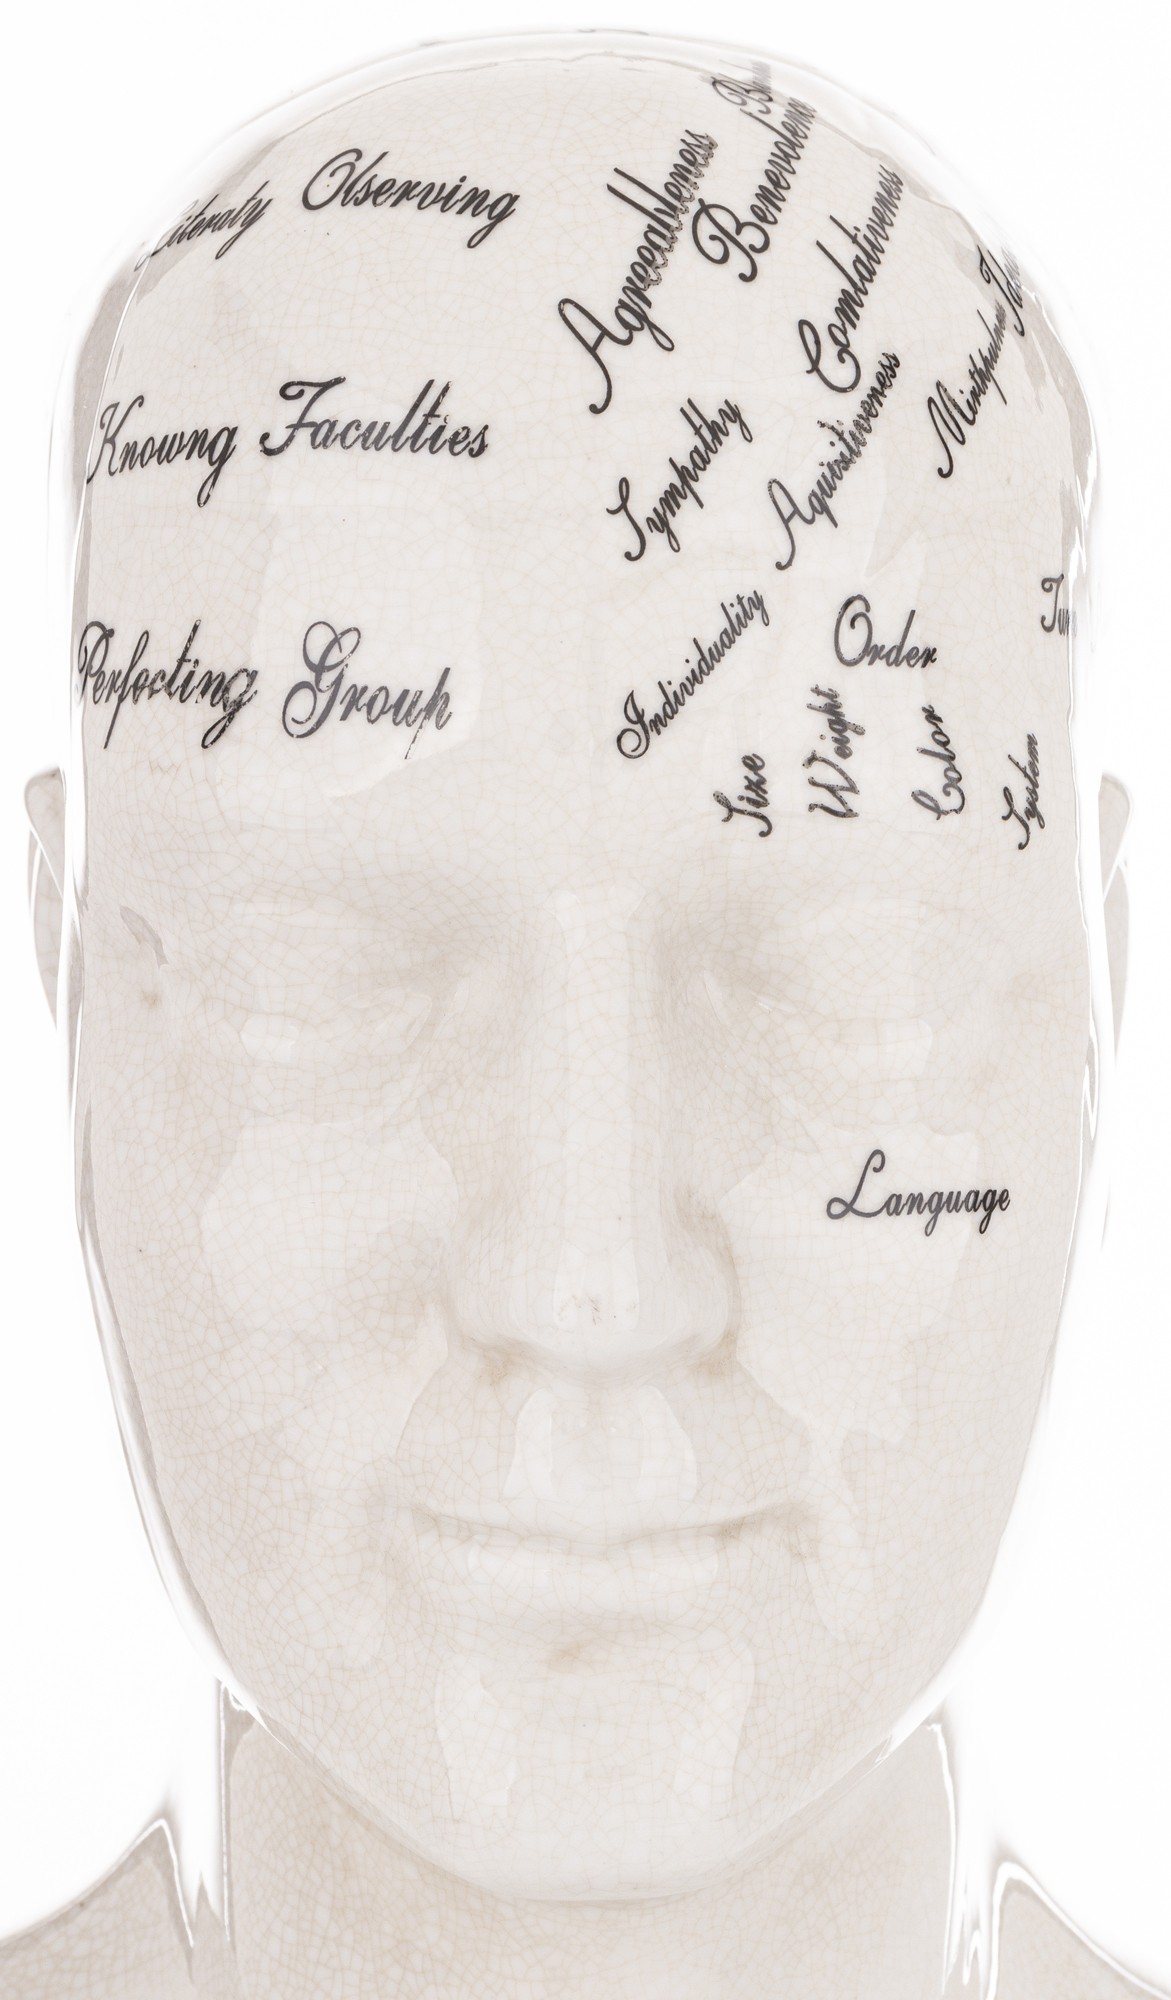 Literaty Olserving
Knowng Faculties
Perfecting Group
Agreeableness
Benevolence
Comlativeness
Sympathy
Aquisitiveness
Mirthfulness
Individuality
Order
Size
Weight
Color
System
Language